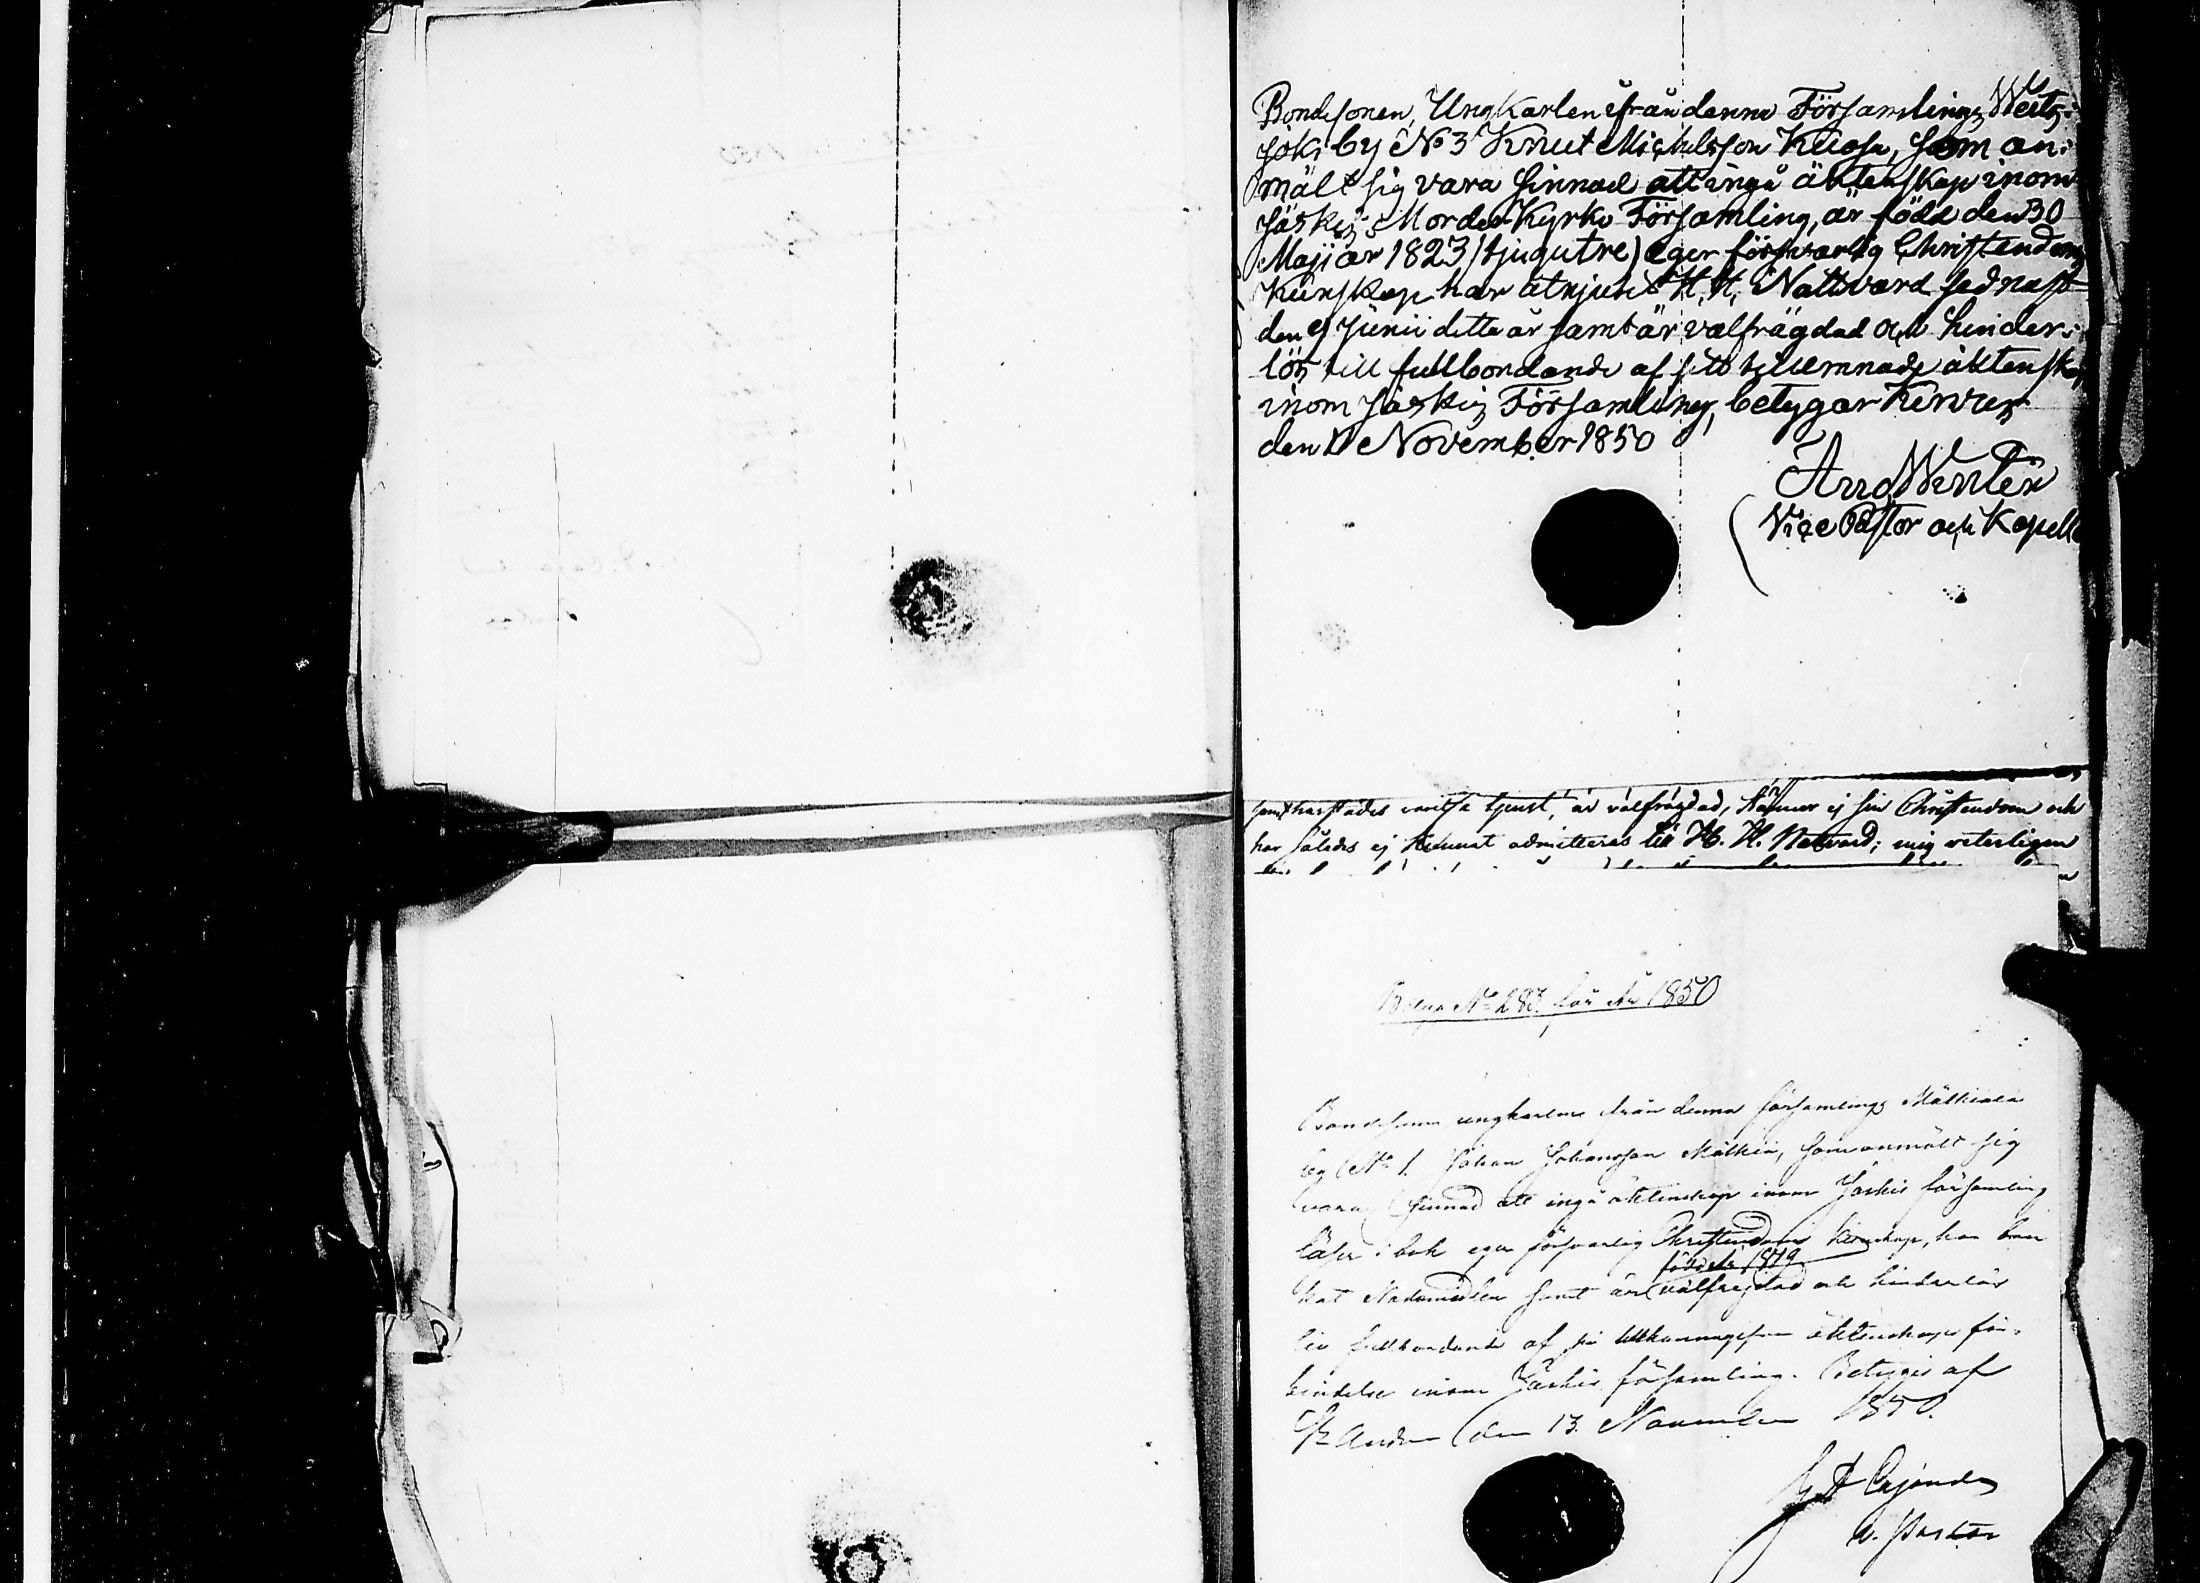 Bondesonen, Ungkarlen ifrån denna Församlings Weitz-
joki by No 3 Knut Michelsson Kuosa, som an-
mält sig vara sinnad att ingå äktenskap inom
Jäskis Moder Kyrko Församling, är född den 30
Maji år 1823 (tjugutre) eger försvarlig Christendoms
Kunskap har åtnjutit H. H. Nattvard sednast
den 9 Junii detta år samt är välfrägdad och hinder-
lös till fullbordande af sitt tillemnade äktenskap
inom Jäskis Församling, betygar Kirvus
den 11 November 1850
Vice Pastor och Kapell
samt härstädes varit i tjenst, är välfrägdad, känner ej sin Christendom och
har således ej kunnat admitteras till H. H. Nattvard; mig veterligen
Bilaga No 283 för År 1850
Bondesonen ungkarlen från denna församlings
by No 1. Johan Johansson Mälkiä, som anmält sig
vara sinnad att ingå äktenskap inom Jäskis församling
läser i bok eger försvarlig Christendoms kunskap, har bru-
född år 1819
kat Nådamedlen samt är välfrejdad och hinderlös
till fullbordande af sin äktenskaps för-
bindelse inom Jäskis församling. Betygas af
St Andree den 13. November 1850.
v. Pastor